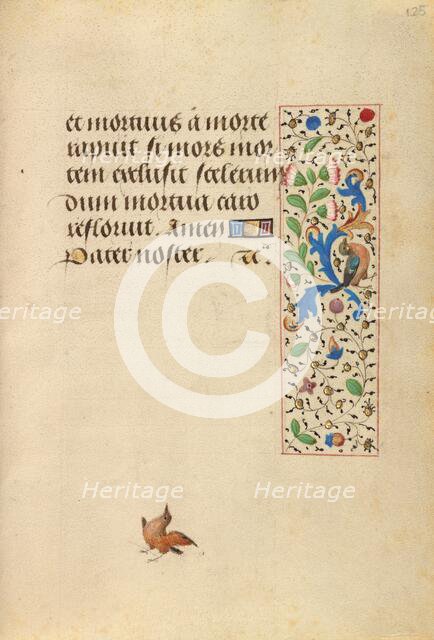 125
et mortuus à morte
rapuit si mors mor
tem exclusit scelerum
dum mortua caro
refloruit. Amen
Pater noster. &c
Heritage Heritage Heritage
Heritage Heritage